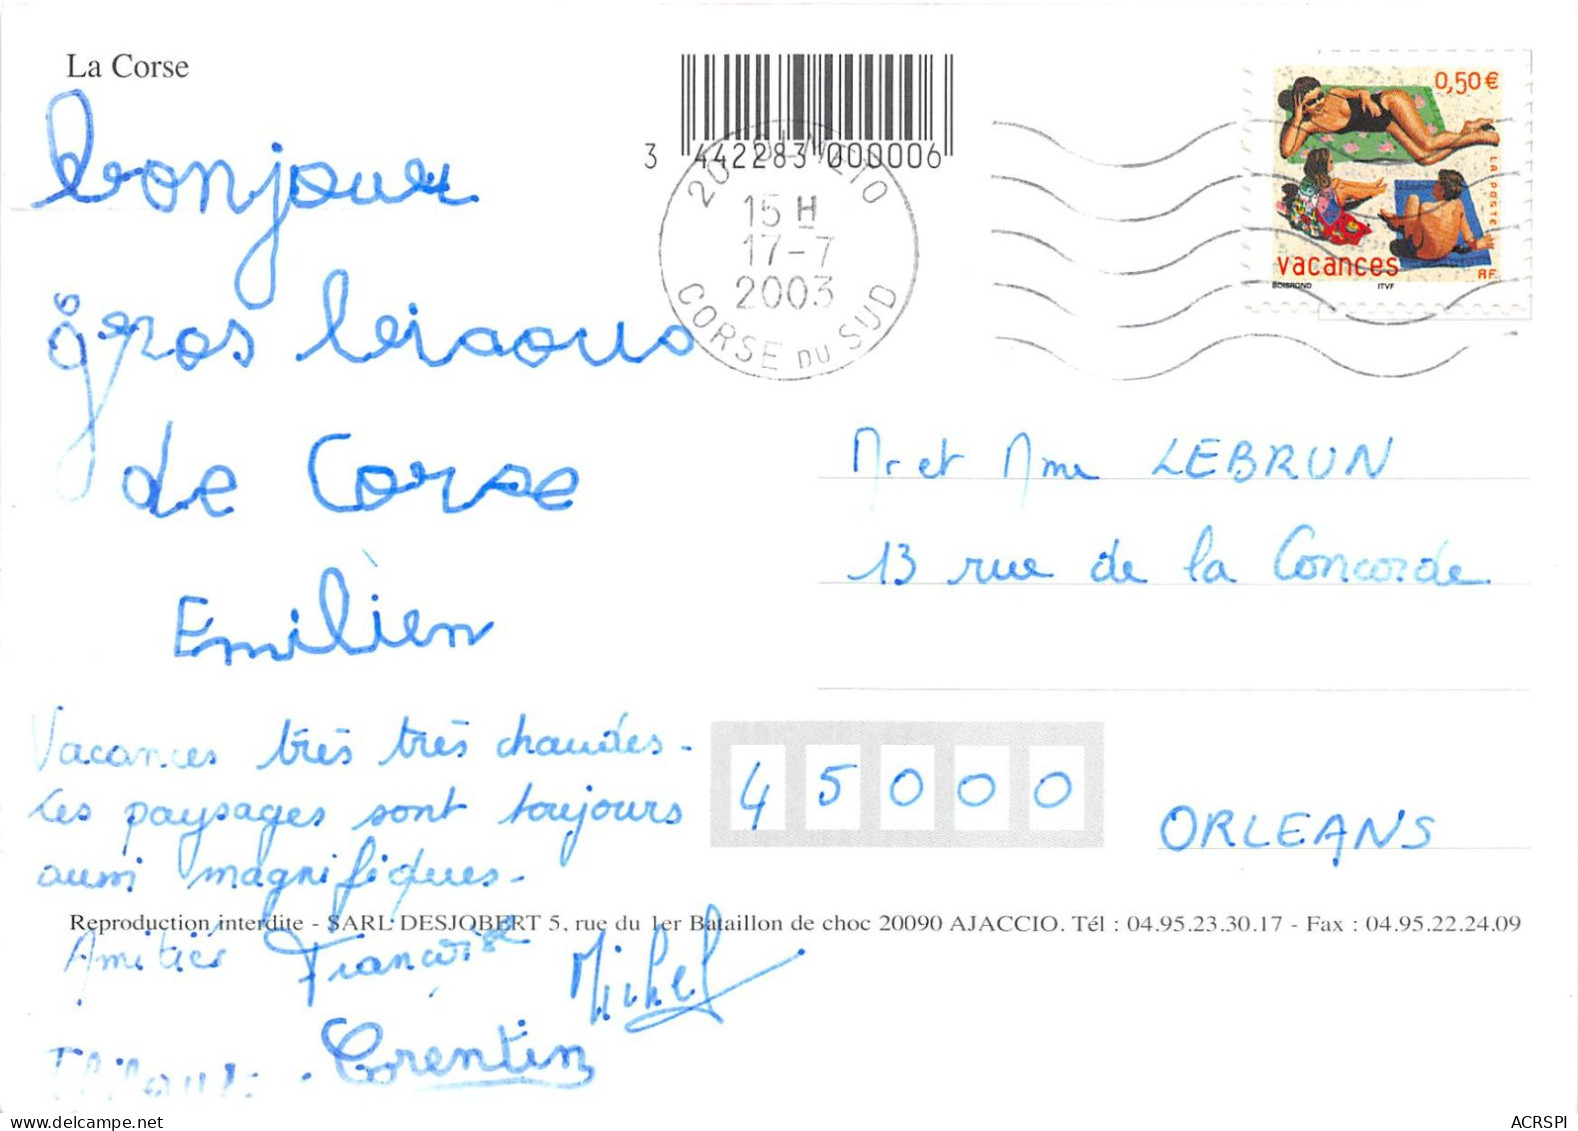 La Corse
3 442283 000006
20
15 H
17-7
2003
CORSE DU SUD
0,50€
LA POSTE
vacances
RF
BOISROND ITVF
bonjour
gros bisous
de Corse
Emilien
Mr et Mme LEBRUN
13 rue de la Concorde
45000
ORLEANS
Vacances très très chaudes.
Les paysages sont toujours
aussi magnifiques.
Reproduction interdite - SARL DESJOBERT 5, rue du 1er Bataillon de choc 20090 AJACCIO. Tél : 04.95.23.30.17 - Fax : 04.95.22.24.09
Amitiés Françoise Michel
Thibault. Corentin
ACRSPI